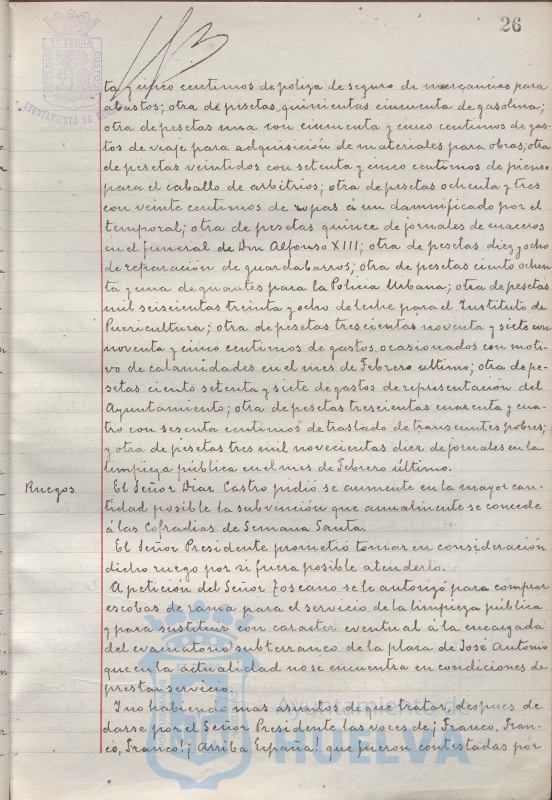 26
AYUNTAMIENTO DE
ta y cinco centimos de poliza de seguro de mercancias para
abastos; otra de pesetas quinientas cincuenta de gasolina;
otra de pesetas una con cincuenta y cinco centimos de gas-
tos de viaje para adquisición de materiales para obras; otra
de pesetas veintidos con setenta y cinco centimos de pienso
para el caballo de arbitrios; otra de pesetas ochenta y tres
con veinte centimos de ropas á un damnificado por el
temporal; otra de pesetas quince de jornales de maceros
en el funeral de Don Alfonso XIII; otra de pesetas diez y ocho
de reparación de guardabarros; otra de pesetas ciento ochen
ta y una de guantes para la Policia Urbana; otra de pesetas
mil seiscientas treinta y ocho de leche para el Instituto de
Puericultura; otra de pesetas trescientas noventa y siete con
noventa y cinco centimos de gastos ocasionados con moti-
vo de calamidades en el mes de Febrero ultimo; otra de pe-
setas ciento setenta y siete de gastos de representación del
Ayuntamiento; otra de pesetas trescientas cuarenta y cua-
tro con sesenta centimos de traslado de transeuntes pobres;
y otra de pesetas tres mil novecientas diez de jornales en la
limpieza pública en el mes de Febrero último.
Ruegos
El Señor Diaz Castro pidió se aumente en la mayor can-
tidad posible la subvención que anualmente se concede
á las Cofradias de Semana Santa.
El Señor Presidente prometió tomar en consideración
dicho ruego por si fuera posible atenderlo.
A petición del Señor Toscano se le autorizó para comprar
escobas de rama para el servicio de la limpieza pública
y para sustituir con caracter eventual á la encargada
del evacuatorio subterraneo de la plaza de José Antonio
que en la actualidad no se encuentra en condiciones de
prestar servicio.
Y no habiendo mas asuntos de que tratar, despues de
darse por el Señor Presidente las voces de ¡Franco, Fran-
co, Franco! ¡Arriba España! que fueron contestadas por
Ayuntamiento de
HUELVA